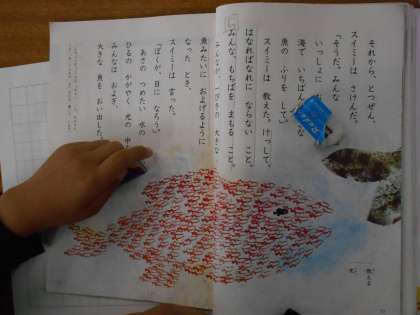 それから、とつぜん、
スイミーは さけんだ。
「そうだ。みんな
いっしょに
海で いちばん
魚の ふりを して。」
スイミーは 教えた。けっして、
はなればなれに ならない こと。
みんな、もちばを まもる こと。
みんなが、一ぴきの 大きな
魚みたいに およげるように
なった とき、
スイミーは 言った。
「ぼくが、目に なろう。」
あさの つめたい 水の 中を、
ひるの かがやく 光の 中を、
みんなは およぎ、
大きな 魚を おい出した。
教える
光